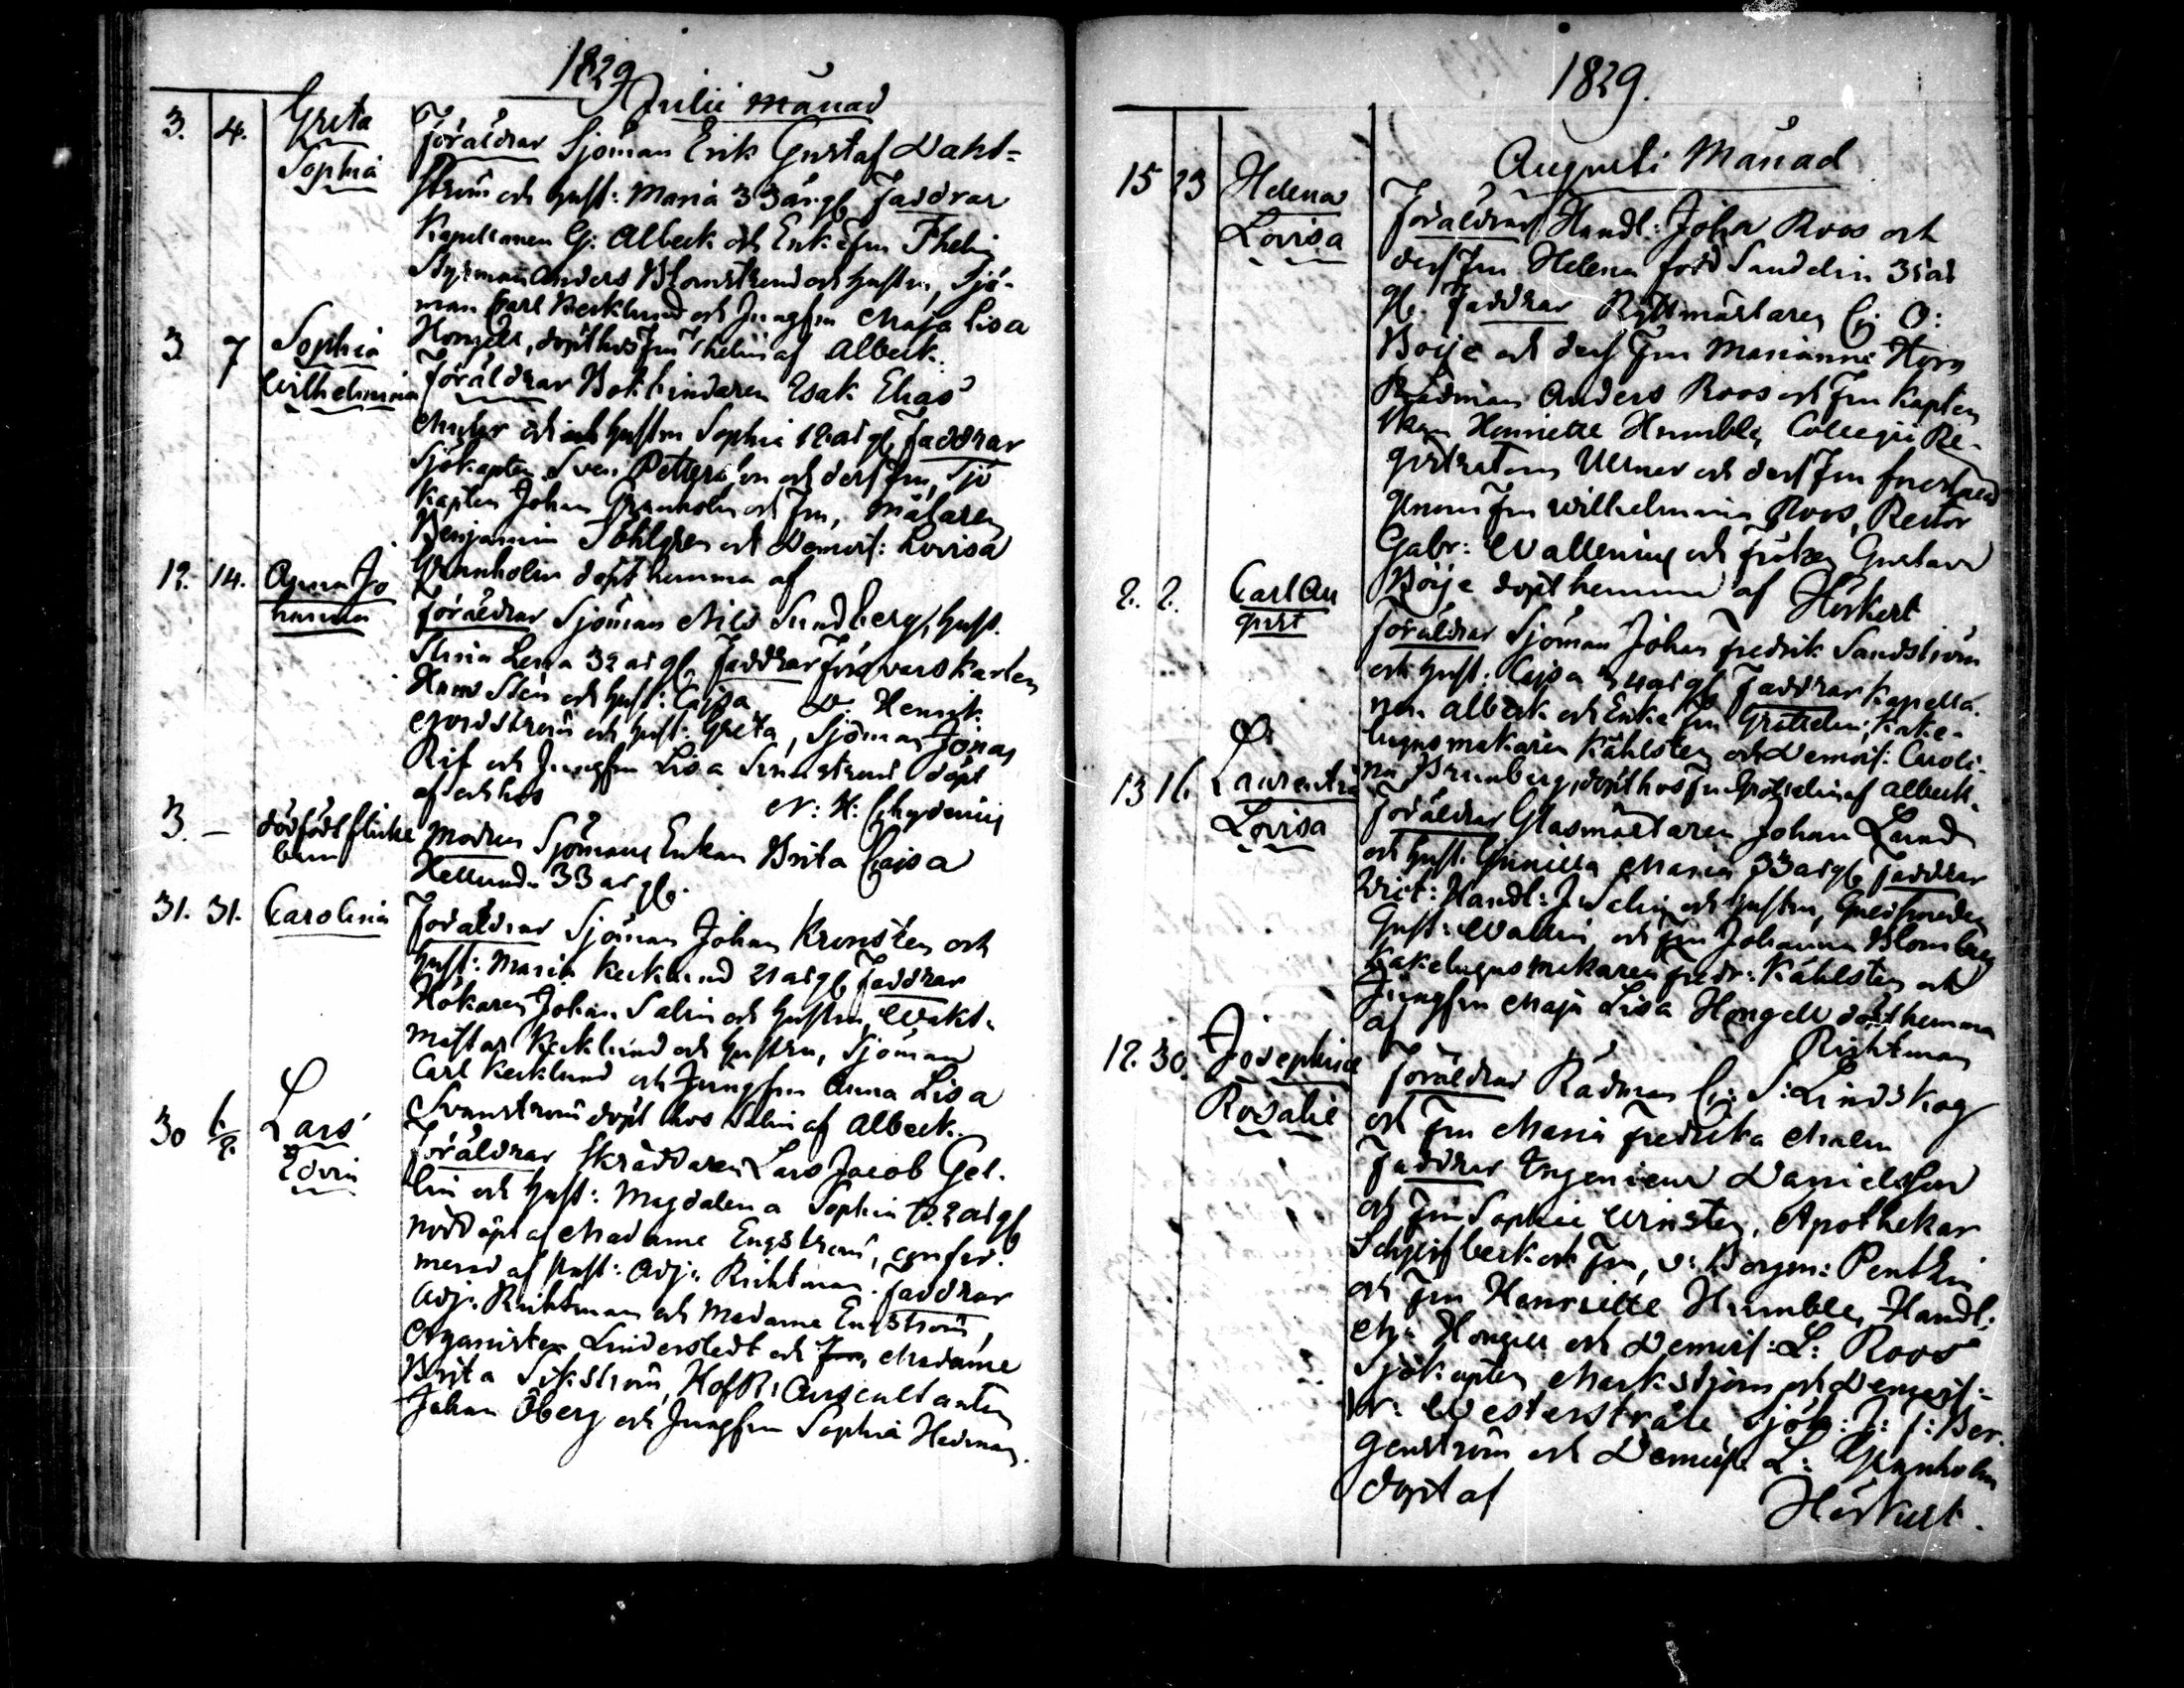 1829
Julii månad
3. 4. Greta Sophia
Föräldrar Sjöman Erik Gustaf Dahl-
ström och hust: Maria 33 årgl Faddrar
Kapellanen G: Albeck och Enkefru Thelin
Styrman Anders Blomstrand och hustru, Sjö-
man Carl Kecklund och Jungfru Maja Lisa
Hongell, döpt hos Fru Thelin af Albeck.
3 7 Sophia Wilhelmina
Föräldrar Bokbindaren Esak Elias
och hustru Sophia årgl Faddrar
Sjökapten Sven Petterson och dess Fru, Sjö
kapten Johan Granholm och Fru, målaren
Benjamin Fohlgren och Demois: Lovisa
Granholm döpt hemma af
12. 14. Anna Jo hanna
Föräldrar Sjöman Nils Sundberg, hust.
Stina Lena 32 årgl Faddrar Försvarskarlen
Hans Sten och hust: Cajsa D: Henrik
Nordström och hust: Greta, Sjöman Jonas
Rif och Jungfru Lisa döpt
af och hos N: H: Chydenius
3. – dödfödt flicke barn
Modren Sjömans Enkan Brita Cajsa
Hellund 33 år gl.
31. 31. Carolina
Föräldrar Sjöman Johan Kronsten och
hust: Maria Kecklund 21 årgl Faddrar
Hökaren Johan Salin och hustru, Wakt-
mästar Kecklund och hustru, Sjöman
Carl Kecklund och Jungfru Anna Lisa
Svanström döpt hos Salin af Albeck.
30 1/8. Lars Edvin
Föräldrar Skräddaren Lars Jacob Gel-
lin och hust: Magdalena Sophia årgl
nöddöpt af Madame Engström, confir-
merad af Past: Adj: Richtman. Faddrar
Adj: Richtman och Madame Engström,
Organisten Linderstedt och Madame
Brita Sikström, HofR: Auscultanten
Johan Öberg och Jungfru Sophia Hedman.
1829.
Augusti Månad
15 23 Helena Lovisa
Föräldrar Handl: Johan Roos och
dess Fru Helena född Sandelin 35 år
gl. Faddrar Ryttmästaren C: O:
Boije och dess Fru Marianne Horn
Rådman Anders Roos och Fru Kapten
skan Henriette Humble, Collegii Re-
gistratorn Ullner och dess Fru förestäld
genom Fru Wilhelmina Roos, Rector
Gabr: Wallenius och fröken Gustava
Boije döpt hemma af Hörkert
2. 2. Carl Au gust
Föräldrar Sjöman Johan Fredrik Sandström
och hust: Cajsa 34 årgl Faddrar Kapella-
nen Albeck och Enke Fru Kake-
lugnsmakaren Kåhlsten och Demois: Caroli-
na Brunberg, döpt hos Fru af Albeck.
13 16 Laurentia Lovisa
Föräldrar Glasmästaren Johan Lund
och hust. Gunilla Maria 33 årgl Faddrar
Vict: Handl: J. Selin och hustru, Guldsmeden
Gust: Wallin och Fru Johanna Blomberg
Kakelugnsmakaren Fredr: Kåhlsten och
Jungfru Maja Lisa Hongell döpt hemma
af Richtman
12. 30. Josephine Rosalie
Föräldrar Rådman C: S: Lindskog
och Fru Maria Fredrika Malm
Faddrar Ingenieur Danielsson
och Fru Sophie Winsten, Apothekar
och Fru, v: Borgm: Penthin
och Fru Henriette Humble, Handl:
M: Hongell och Demois: L: Roos
Sjökapten Markstjern och Demois:
Westerstråle, Sjök: J: J: Ber-
genström och Demois: L: Granholm
döpt af Hörkert.